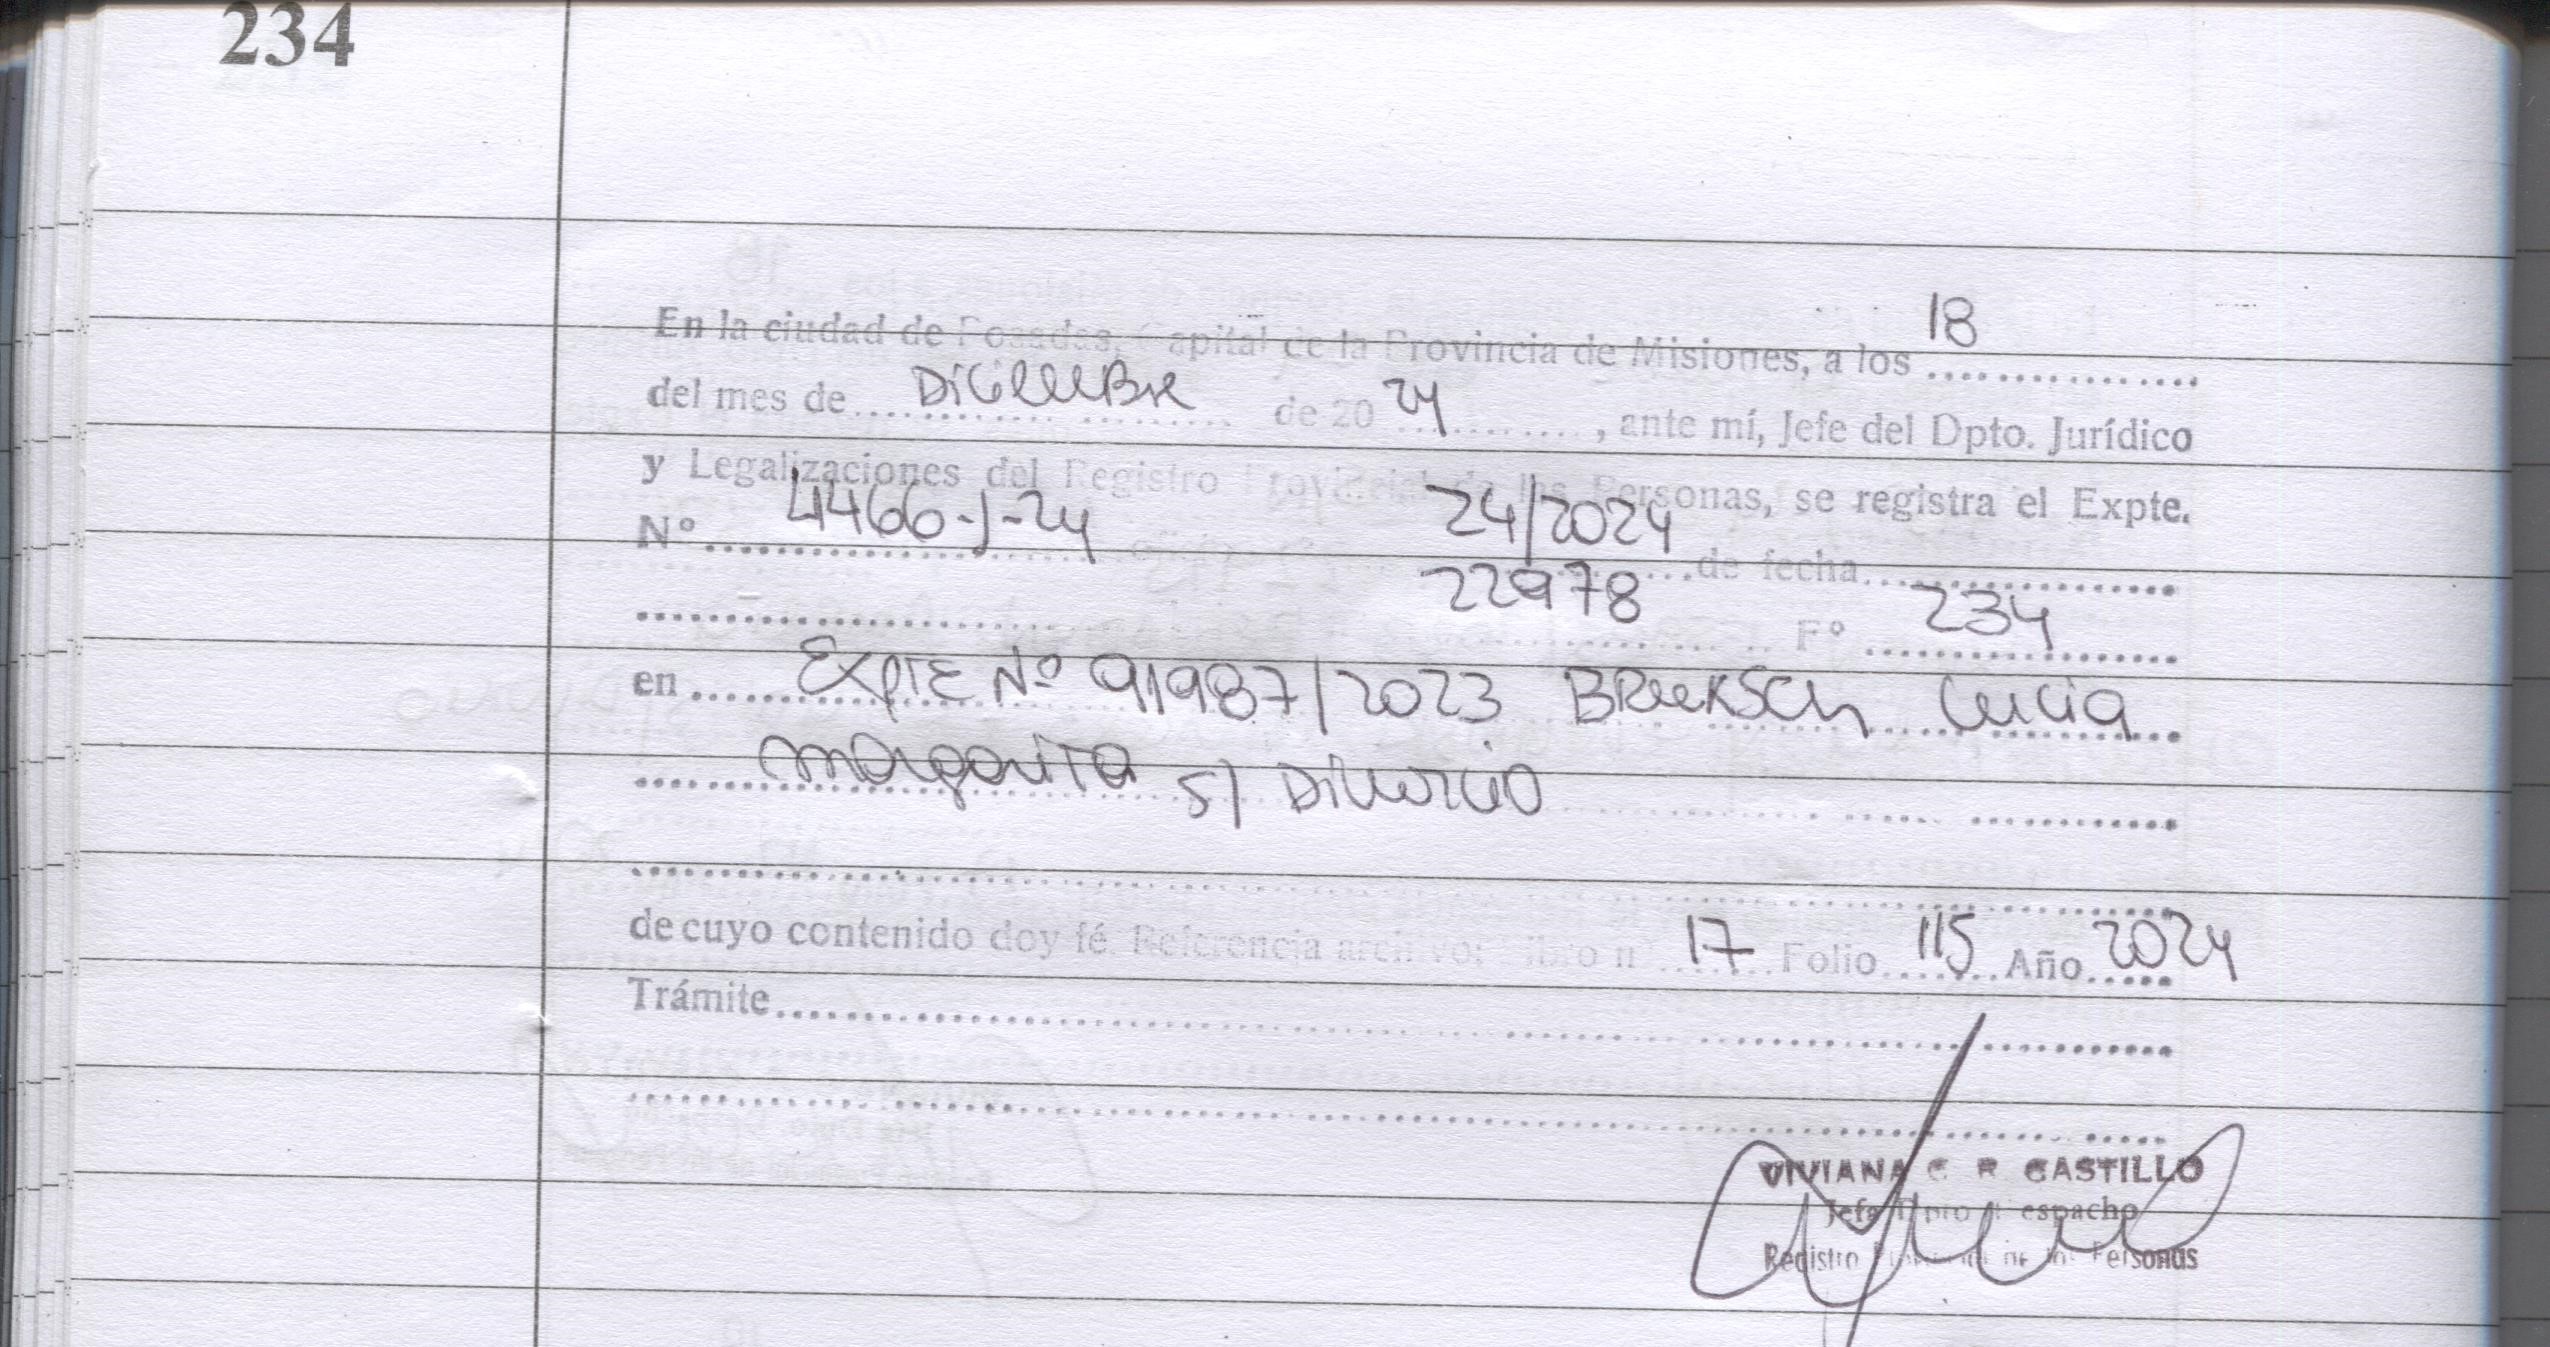 234
En la ciudad de Posadas, Capital de la Provincia de Misiones, a los 18
del mes de Diciembre de 20 24, ante mí, Jefe del Dpto. Jurídico
y Legalizaciones del Registro Provincial de las Personas, se registra el Expte.
Nº 4466-J-24 24/2024 de fecha
22978 Fº 234
en Expte Nº 91987/2023 Lucia
Margarita s/ Divorcio
de cuyo contenido doy fé. Referencia archivo: Libro nº 17 Folio 115 Año 2024
Trámite
VIVIANA C. R. CASTILLO
Jefa Dpto Despacho
Registro Provincial de las Personas